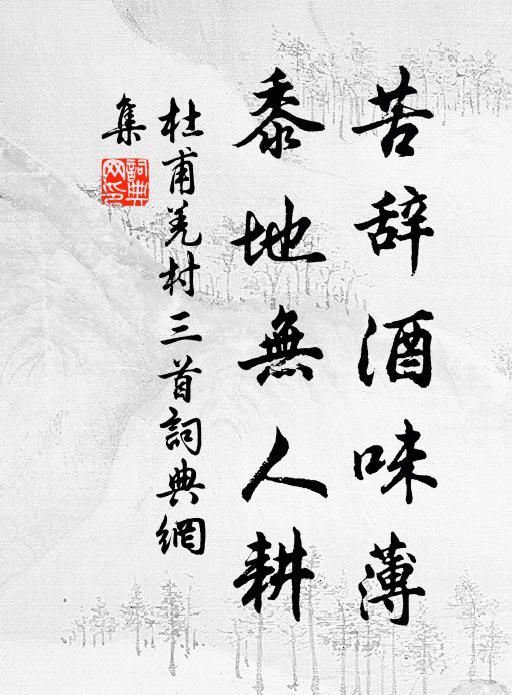 苦辞酒味薄
黍地無人耕
杜甫羌村三首詞典網
集
詞典
网印